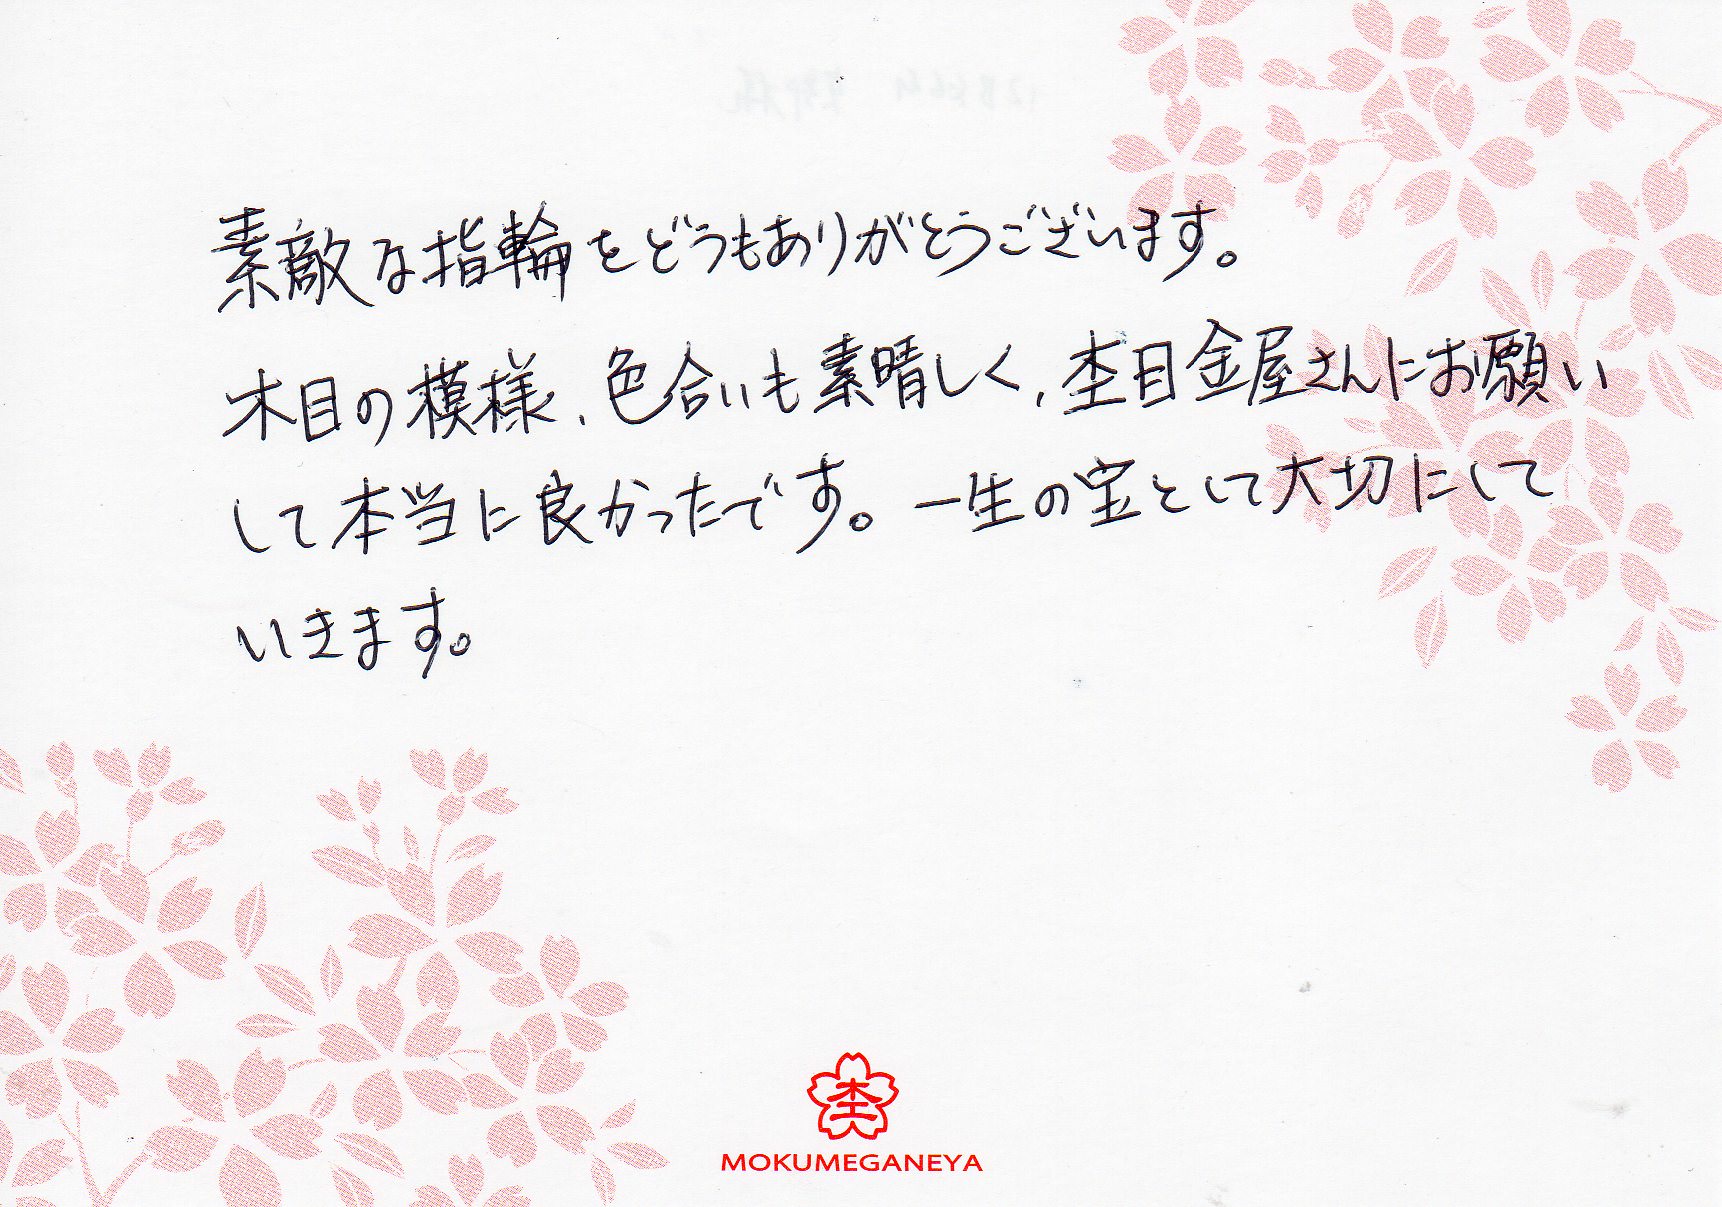 素敵な指輪をどうもありがとうございます。
木目の模様、色合いも素晴しく、杢目金屋さんにお願い
して本当に良かったです。一生の宝として大切にして
いきます。
杢
MOKUMEGANEYA